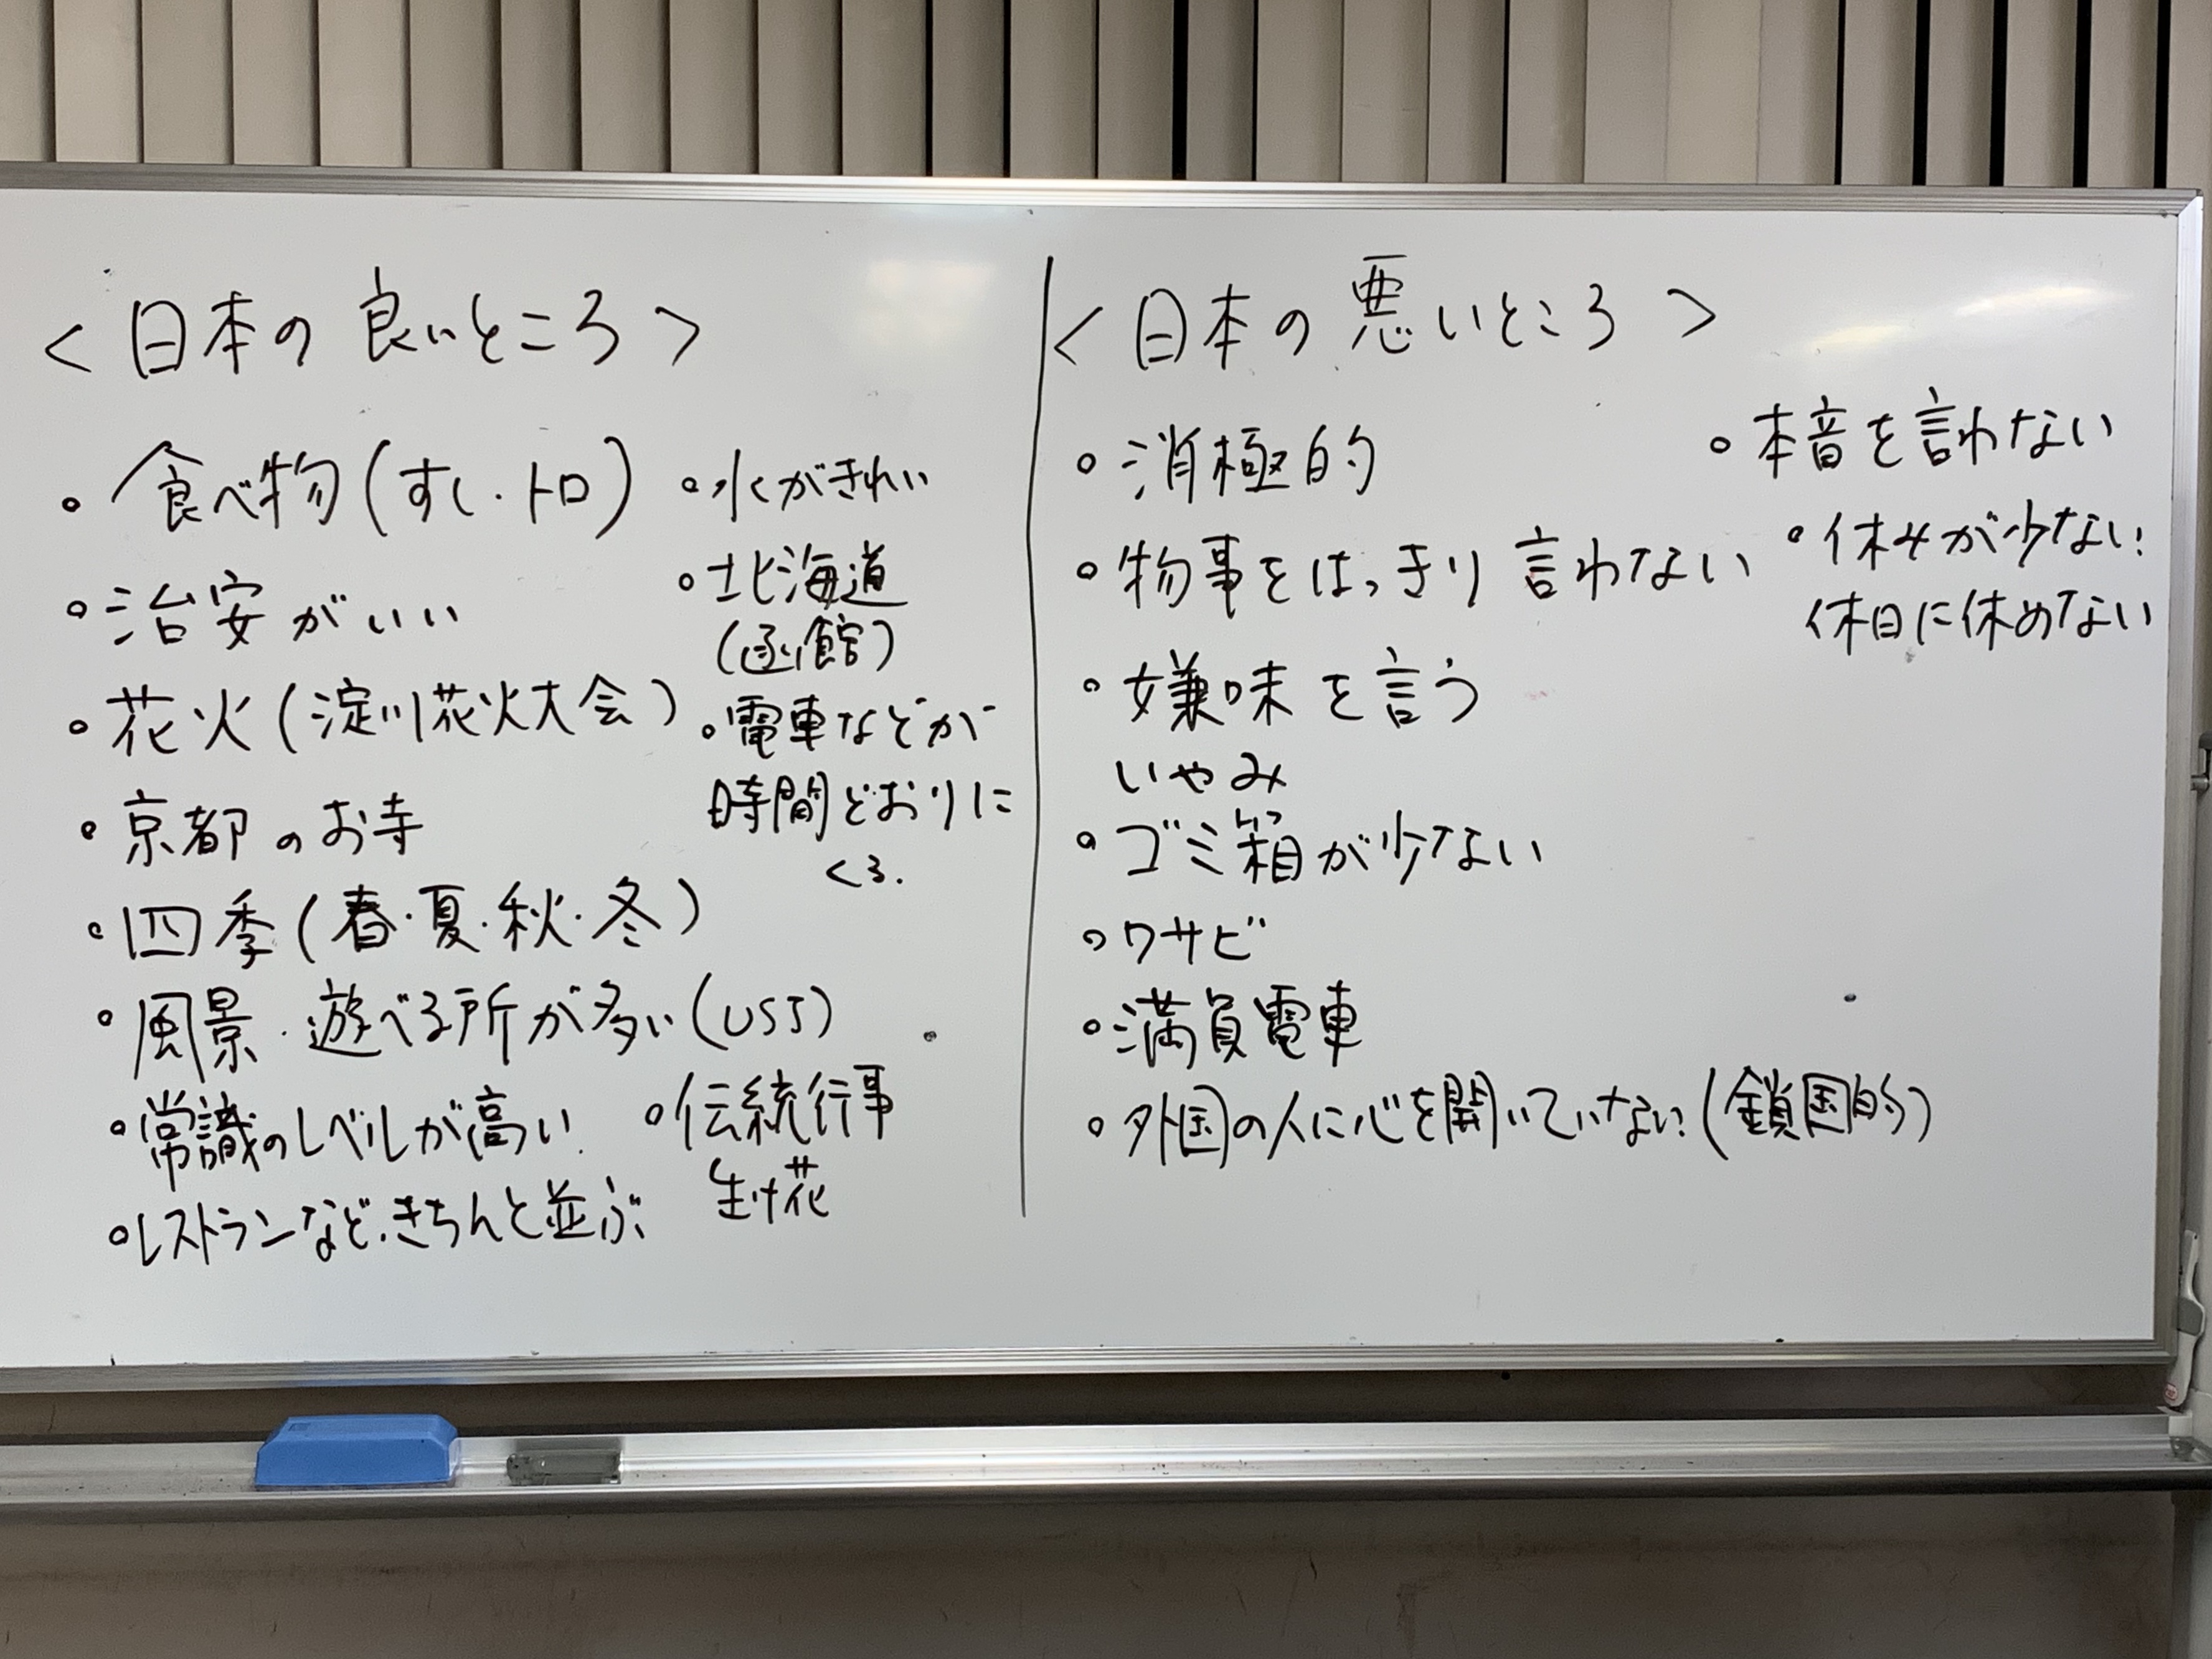 <日本の良いところ>
。食べ物(すし・トロ)
。治安がいい
。花火(淀川花火大会)
。京都のお寺
。四季(春・夏・秋・冬)
。風景・遊べる所が多い(USJ)
。常識のレベルが高い
。レストランなど、きちんと並ぶ
。水がきれい
。北海道
(函館)
。電車などが
時間どおりに
くる.
。伝統行事
生け花
<日本の悪いところ>
。消極的
。物事をはっきり言わない
。嫌味を言う
いやみ
。ゴミ箱が少ない
。ワサビ
。満員電車
。外国の人に心を開いていない(鎖国的)
。本音を言わない
。休みが少ない
休日に休めない